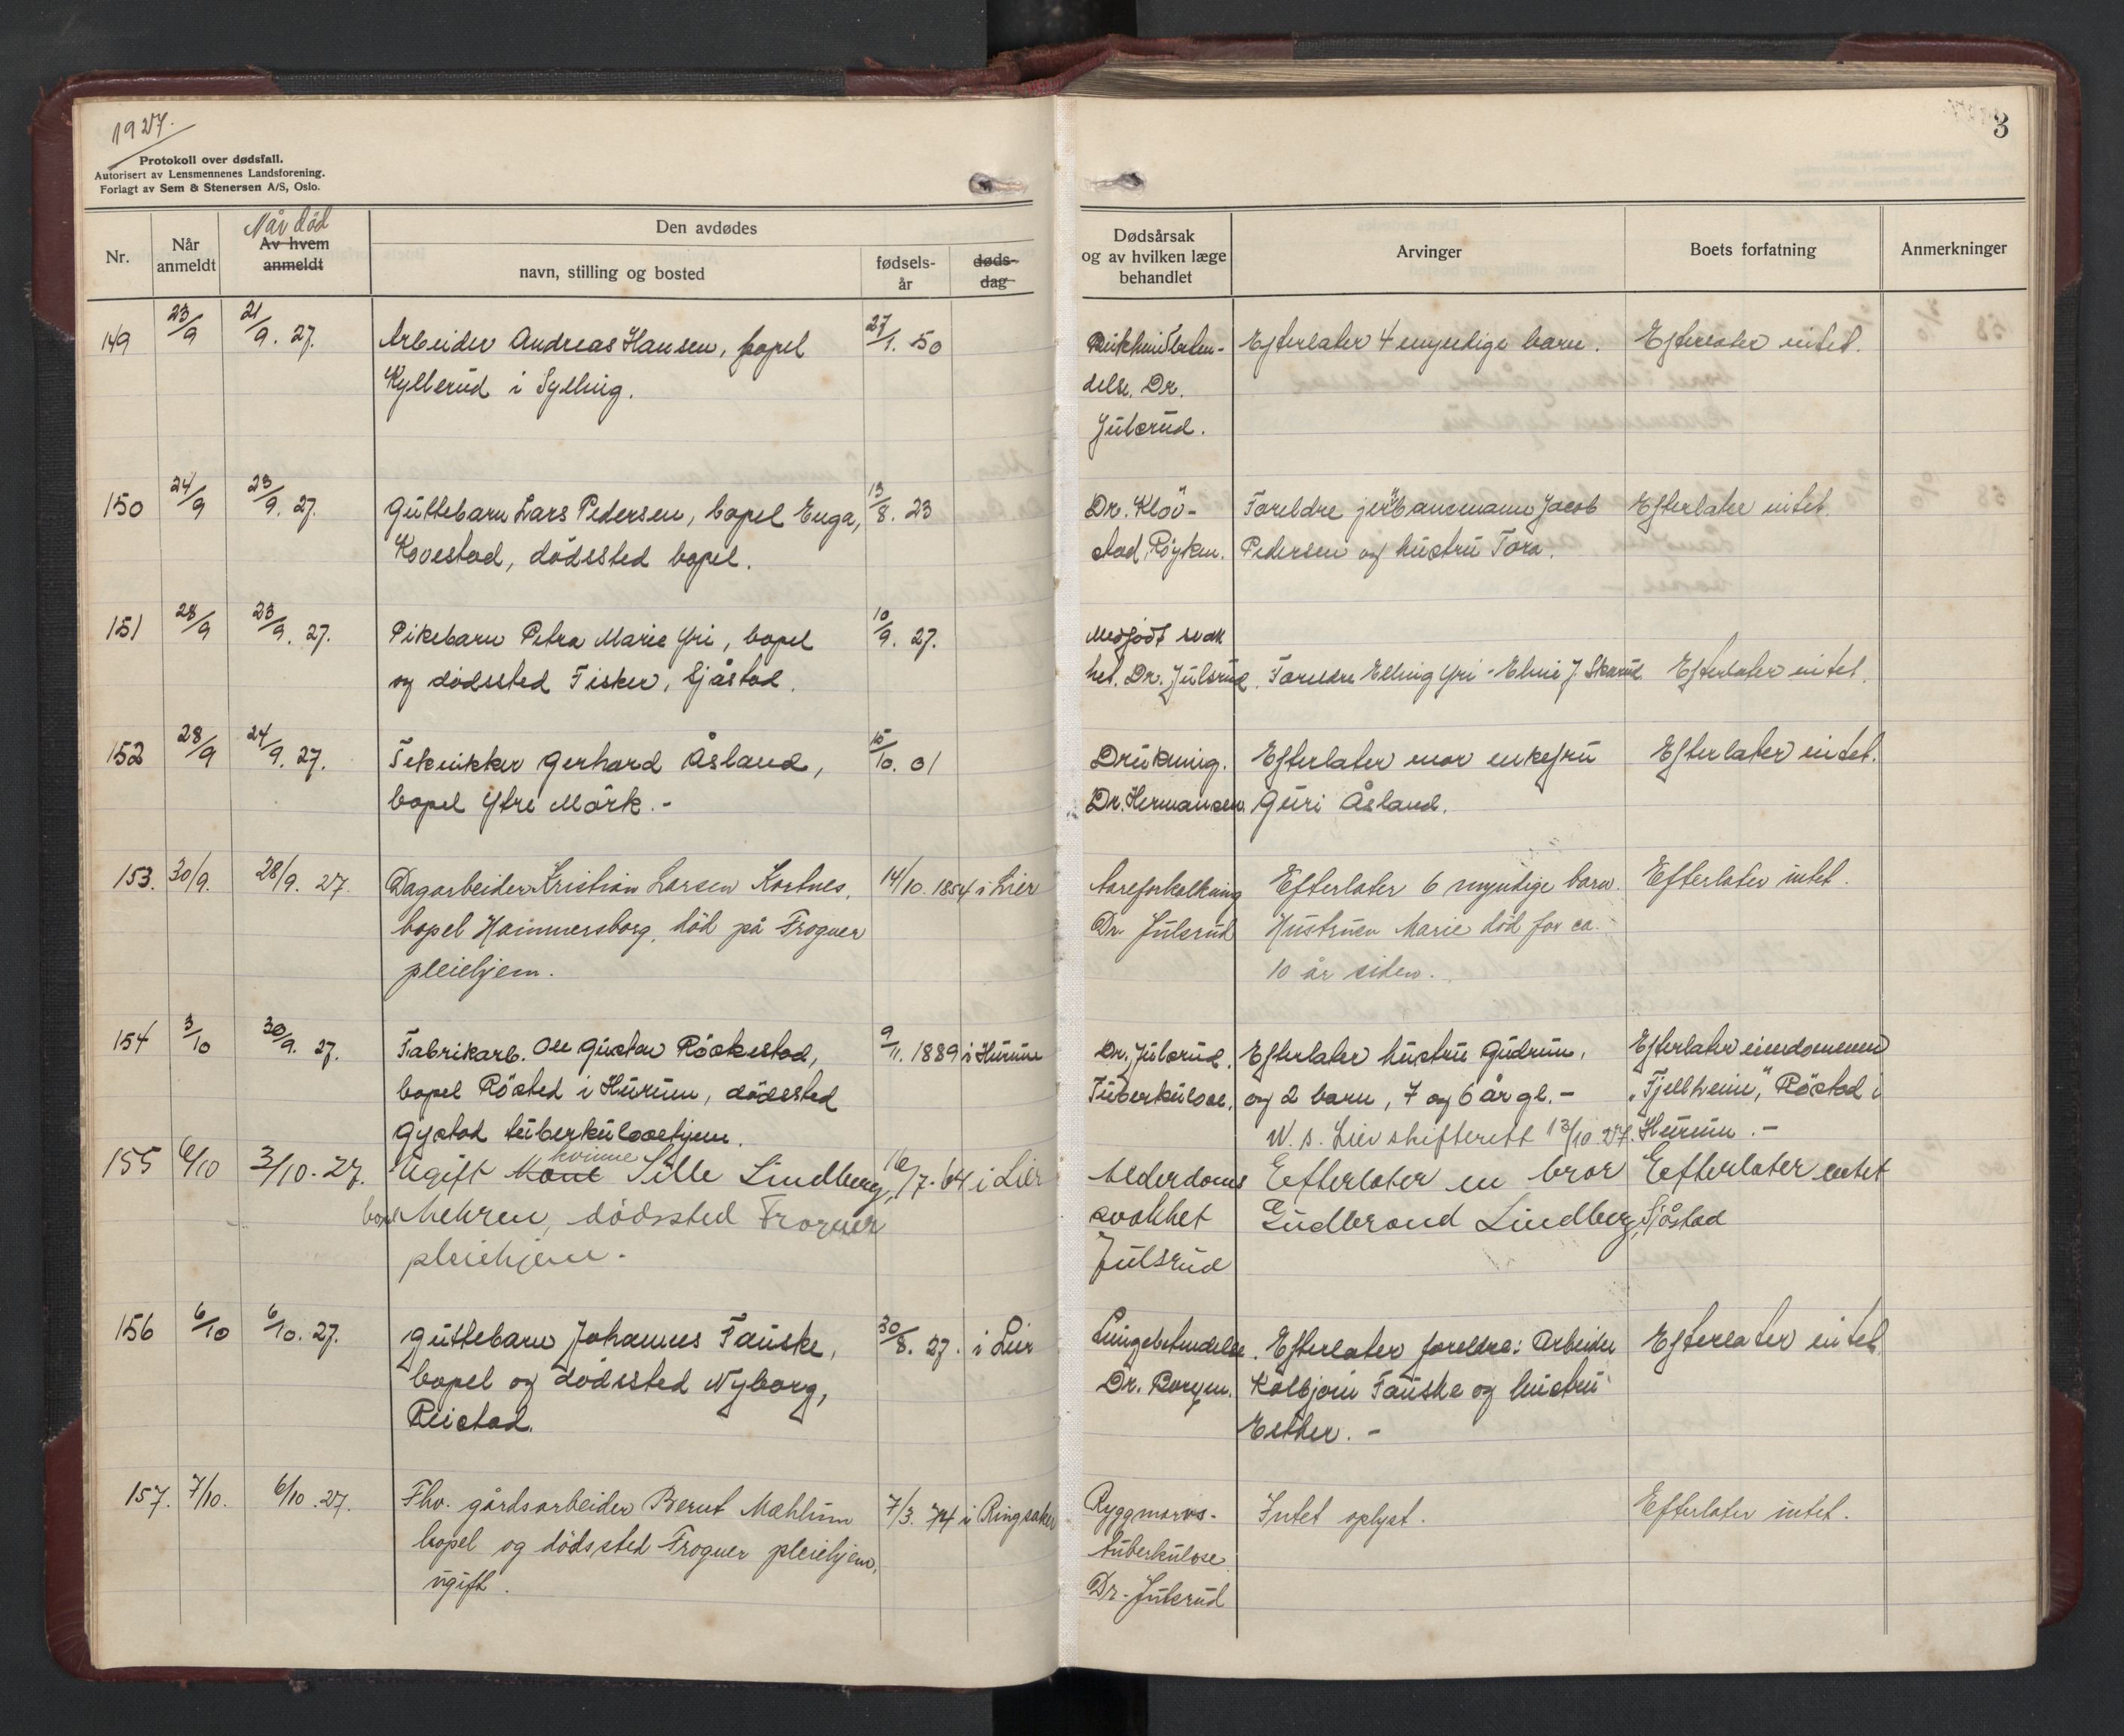 1927.
Protokoll over dødsfall.
Autorisert av Lensmennenes Landsforening.
Forlagt av Sem & Stenersen A/S, Oslo.
Nr.
Når anmeldt
Når død
Av hvem anmeldt
Den avdødes
navn, stilling og bosted
fødsels-år
døds-dag
149 23/9 21/9. 27. Arbeider Andreas Hansen, bopel 27/1. 50
Kylberud i Sylling.
150 24/9 23/9. 27. Guttebarn Lars Pedersen, bopel Enga, 13/8. 23
Kovestad, dödssted bopel.
151 28/9 23/9. 27. Pikebarn Petra Marie Yri, bopel 10/9. 27.
og dödssted Fisker, Sjåstad.
152 28/9 24/9. 27. Teknikker Gerhard Åsland, 15/10. 01
bopel Ytre Mörk. -
153. 30/9. 28/9. 27. Dagarbeider Kristian Larsen Kortnes, 14/10. 1854 i Lier
bopel Hammersborg, död på Frogner
pleiehjem.
154 3/10 30/9. 27. Fabrikarb. Ole Gustav Röskestad, 9/11. 1889 i Hurum
bopel Röstad i Hurum, dödssted
Gystad tuberkulosehjem.
155 6/10 3/10. 27. Ugift Mand kvinne Sille Lindberg, 16/7. 64 i Lier
bopel Mehren, dödssted Frogner
pleiehjem.
156 6/10 6/10. 27. Guttebarn Johannes Fauske, 30/8. 27. i Lier
bopel og dödssted Nyborg,
Reistad.
157. 7/10. 6/10. 27. Fhv. gårdsarbeider Bernt Mæhlum 7/3. 74 i Ringsaker
bopel og dödssted Frogner pleiehjem,
ugift.
3
Dødsårsak
og av hvilken læge
behandlet
Arvinger
Boets forfatning
Anmerkninger
Efterlater 4 myndige barn. Efterlater intet.
delse. Dr.
Julsrud.
Dr. Klöv- Foreldre jernbanemann Jacob Efterlater intet.
stad, Röyken. Pedersen og hustru Tora.
Medfödt svak
het. Dr. Julsrud. Foreldre Elling Yri - Eline J. Skarud Efterlater intet.
Drukning. Efterlater mor enkefru Efterlater intet.
Dr. Hermansen. Guri Åsland.
Åreforkalkning Efterlater 6 myndige barn. Efterlater intet.
Dr. Julsrud Hustruen Marie död for ca.
10 år siden.
Dr. Julsrud. Efterlater hustru Gudrun, Efterlater eiendommen
Tuberkulose. og 2 barn, 7 og 6 år gl. - "Fjellheim", Röstad i
Lier skifterett 13/10 27. Hurum. -
Alderdoms Efterlater en bror Efterlater intet
svakhet Gudbrand Lindberg, Sjåstad
Julsrud
Lungebetendelse. Efterlater foreldre: Arbeider Efterlater intet
Dr. Borgen. Kolbjörn Fauske og hustru
Esther. -
Ryggmarvs- Intet oplyst. Efterlater intet.
tuberkulose.
Dr. Julsrud